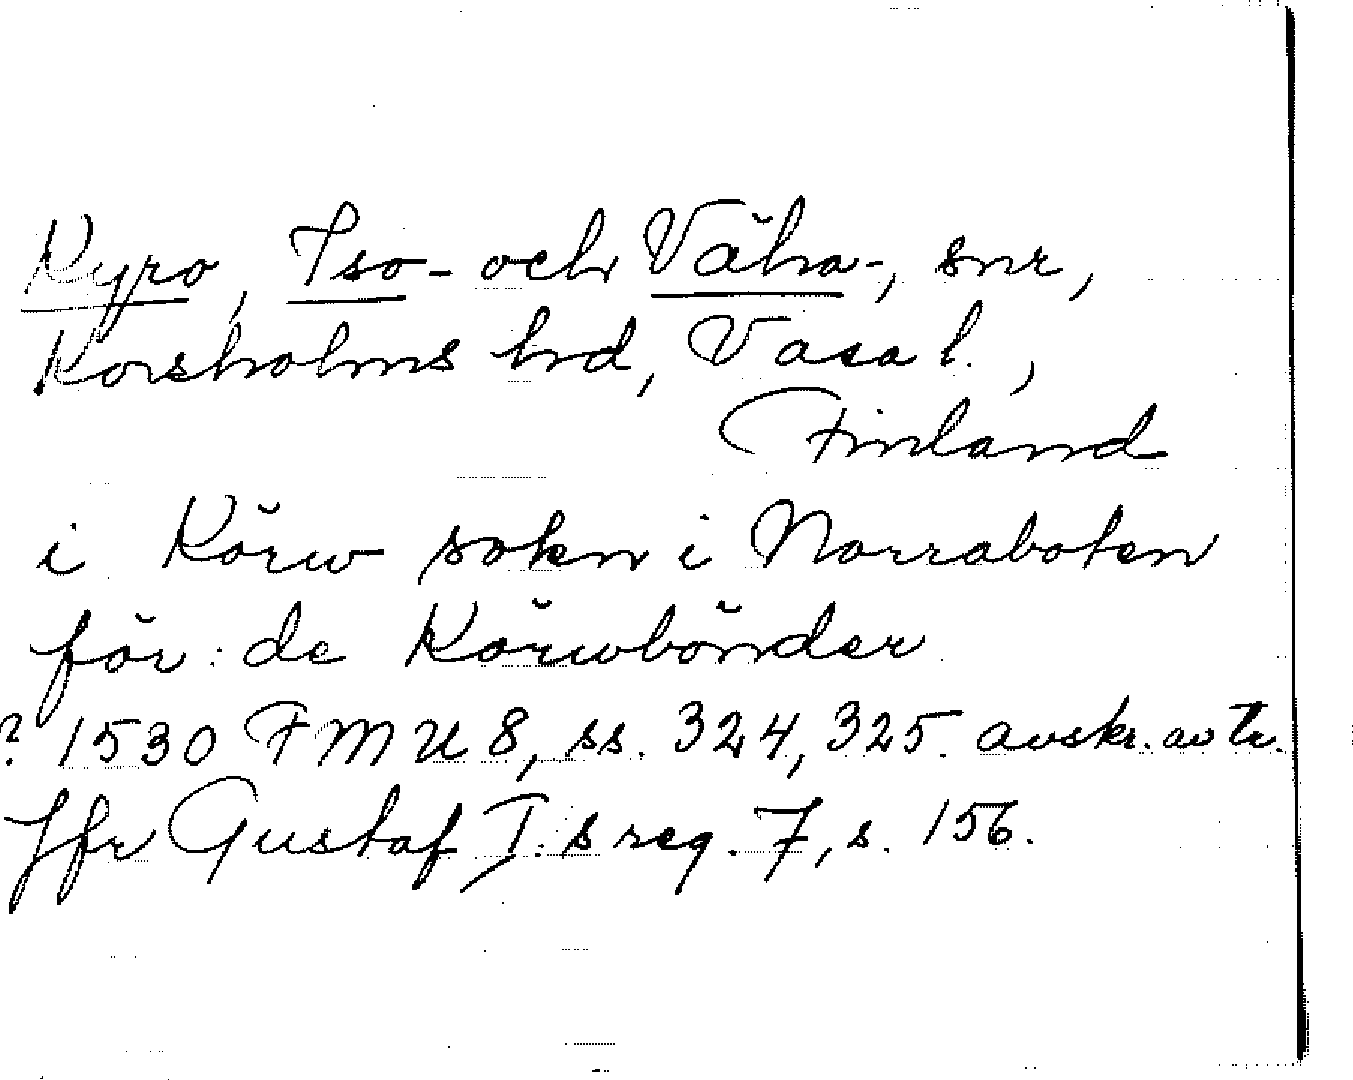 Kyro, Iso- och Väha-, snr,
Korsholms hrd, Vasa l.,
Finland
i Körw sokn i Norraboten
för: de Körwbönder
? 1530 FMU 8, ss. 324, 325. avskr. av tr.
Jfr Gustaf I:s reg. 7, s. 156.